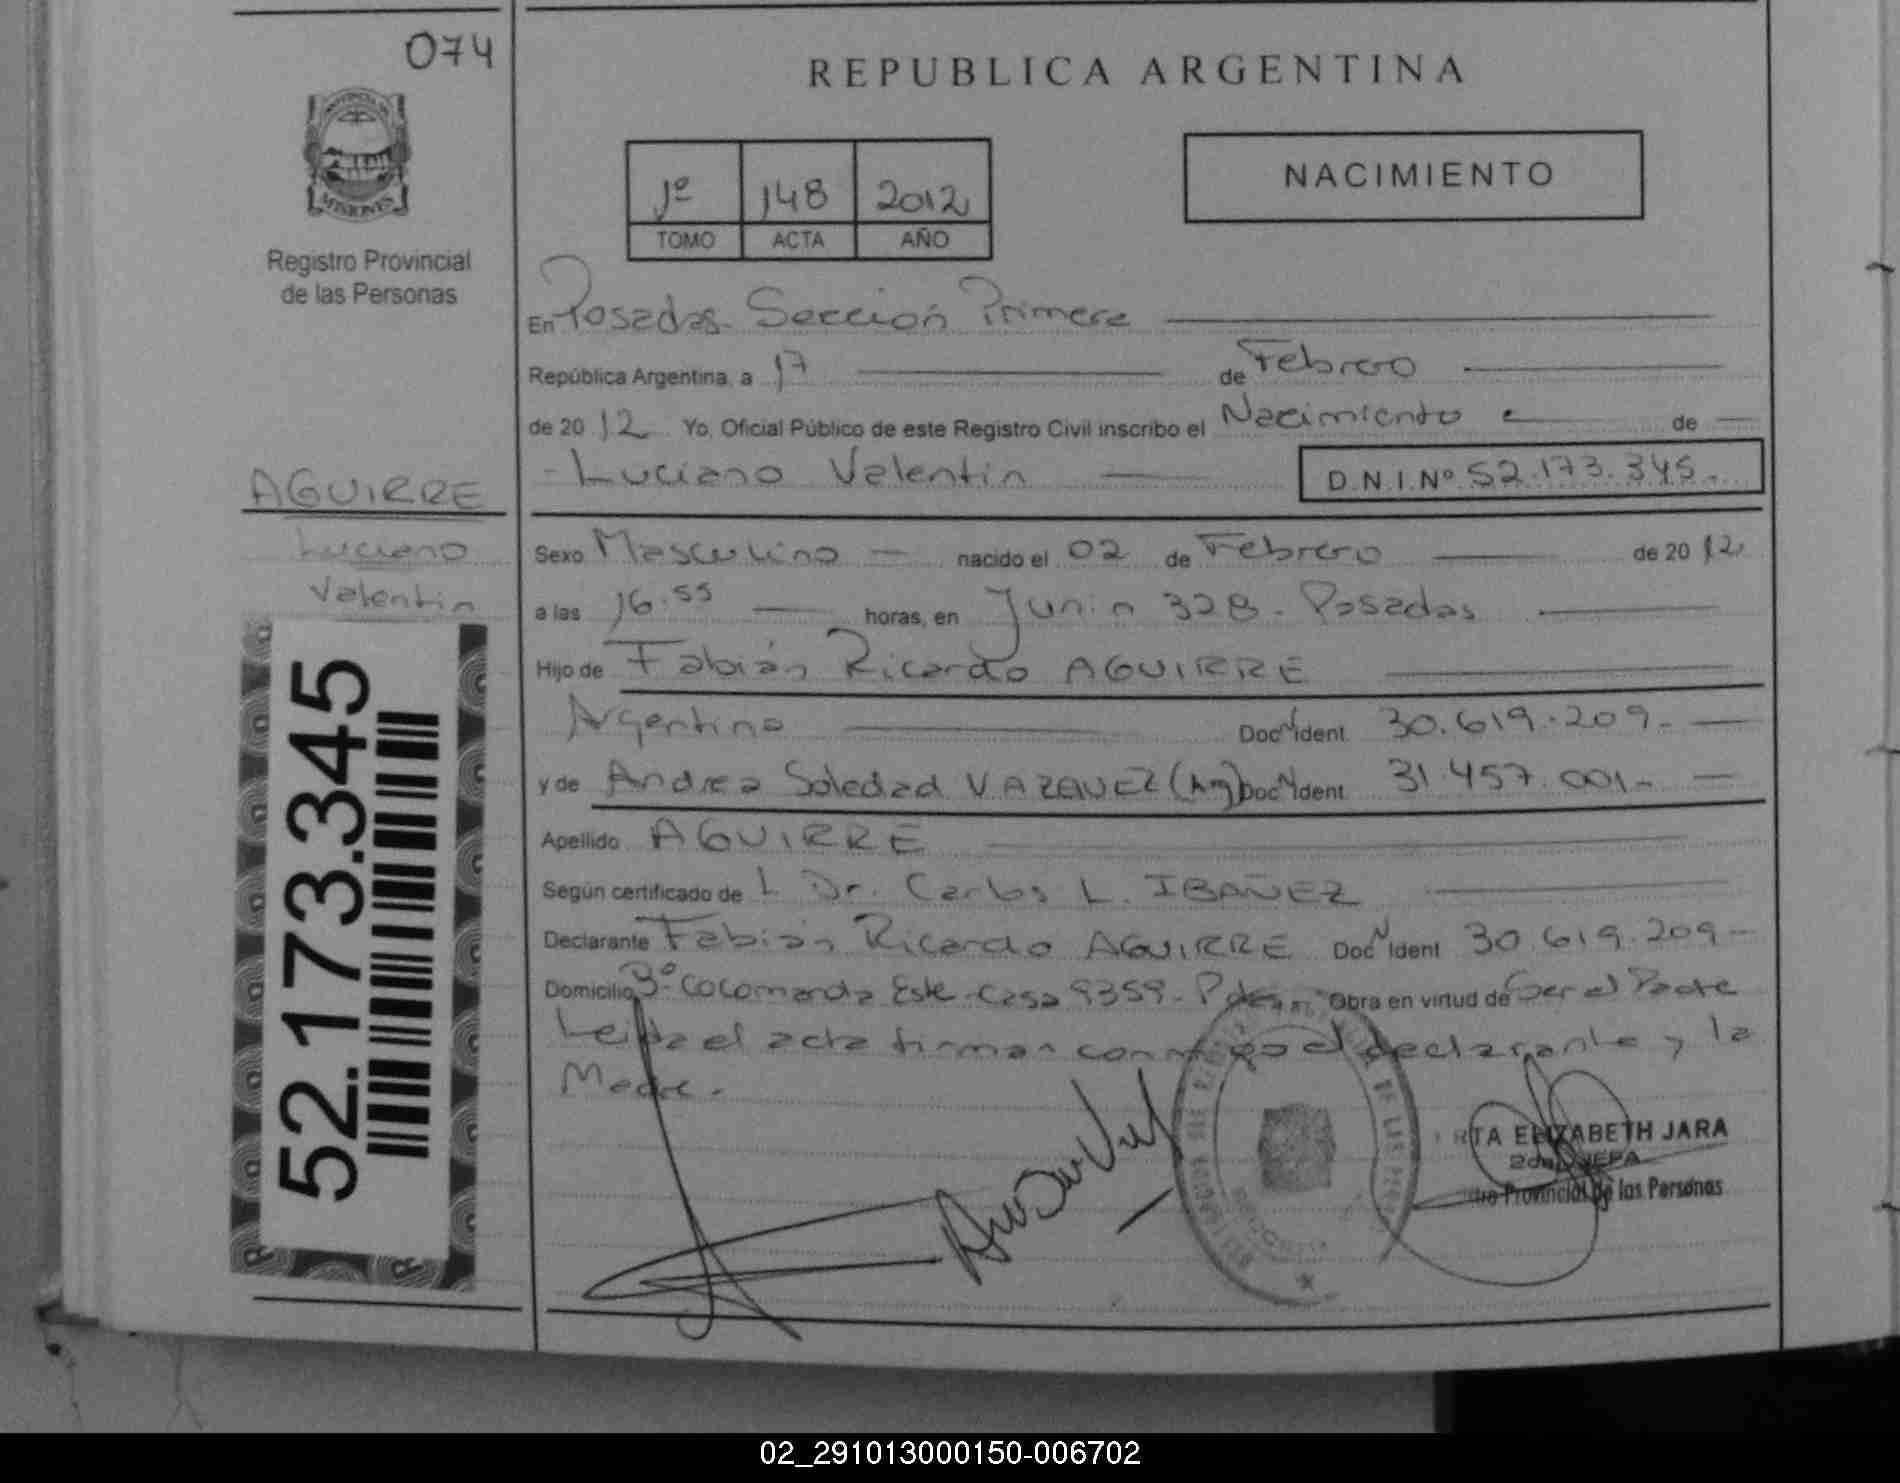 074
REPUBLICA ARGENTINA
PROVINCIA DE
MISIONES
Registro Provincial
de las Personas
1º 148 2012
TOMO ACTA AÑO
NACIMIENTO
En Posadas. Sección Primera
República Argentina, a 17 de Febrero
de 2012 Yo, Oficial Público de este Registro Civil inscribo el Nacimiento de
Luciano Valentin D.N.I.Nº 52.173.345.-
AGUIRRE
Luciano
Valentin
52.173.345
Sexo Masculino nacido el 02 de Febrero de 2012
a las 16.55 horas, en Junin 328 - Posadas
Hijo de Fabián Ricardo AGUIRRE
Argentino Doc N Ident 30.619.209.-
y de Andrea Soledad VAZQUEZ (Arg) Doc N Ident 31.457.001.-
Apellido AGUIRRE
Según certificado de L Dr. Carlos L. IBAÑEZ
Declarante Fabián Ricardo AGUIRRE Doc N Ident 30.619.209-
Domicilio Bº Cocomarola Este - Casa 9359 - Pdas Obra en virtud de Ser el Padre
Leida el acta firman conmigo el declarante y la
Madre.-
RTA ELIZABETH JARA
2da JEFA
tro Provincial de las Personas
02_291013000150-006702